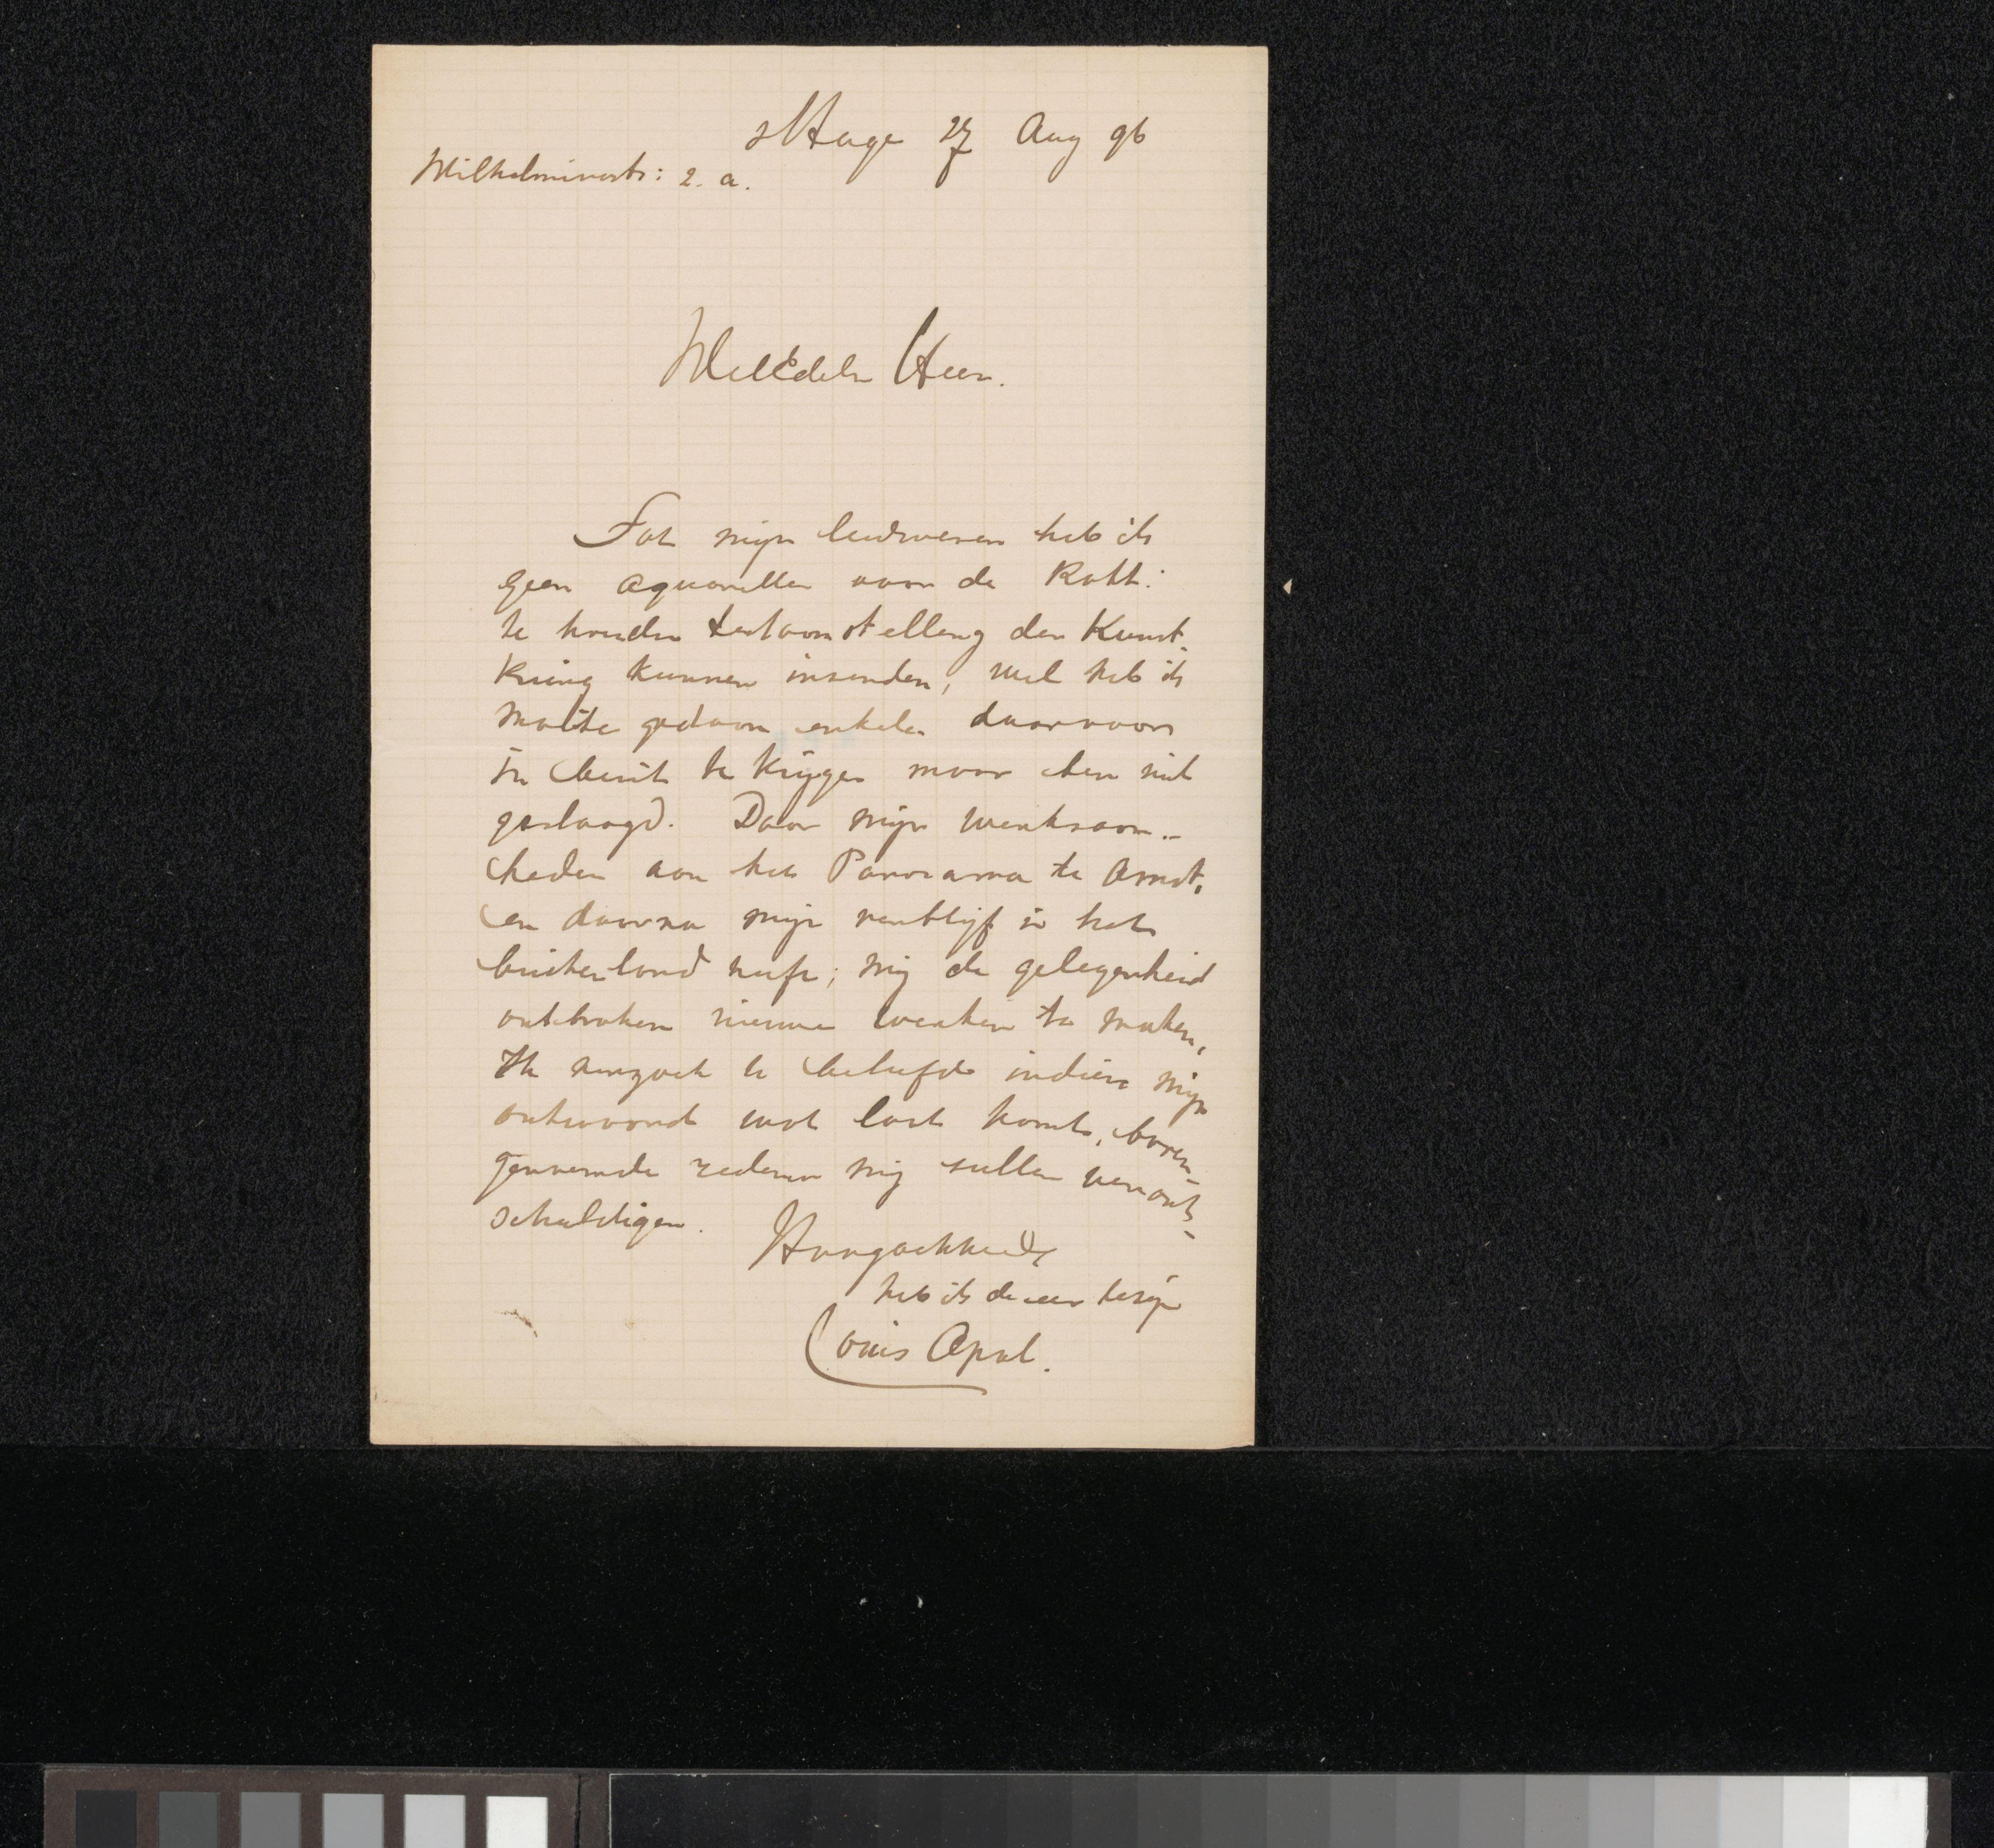 sHage 27 Aug 96
Wilhelminastr: 2. a.
WelEdele Heer.
Tot mijn leedwezen heb ik
geen aquarellen voor de Rott:
te houden tentoonstelling der Kunst-
kring kunnen inzenden, wel heb ik
moeite gedaan enkele daarvoor
in bezit te krijgen maar ben niet
geslaagd. Daar mijn werkzaam-
heden aan het Panorama te Amst.
en daarna mijn verblijf in het
buitenland mij de gelegenheid
ontbraken nieuwe werken te maken,
Ik verzoek u beleefd indien mijn
antwoord wat laat komt, boven-
genoemde redenen mij zullen veront-
schuldigen.
Hoogachtend
heb ik de eer te zijn
Louis Apol.